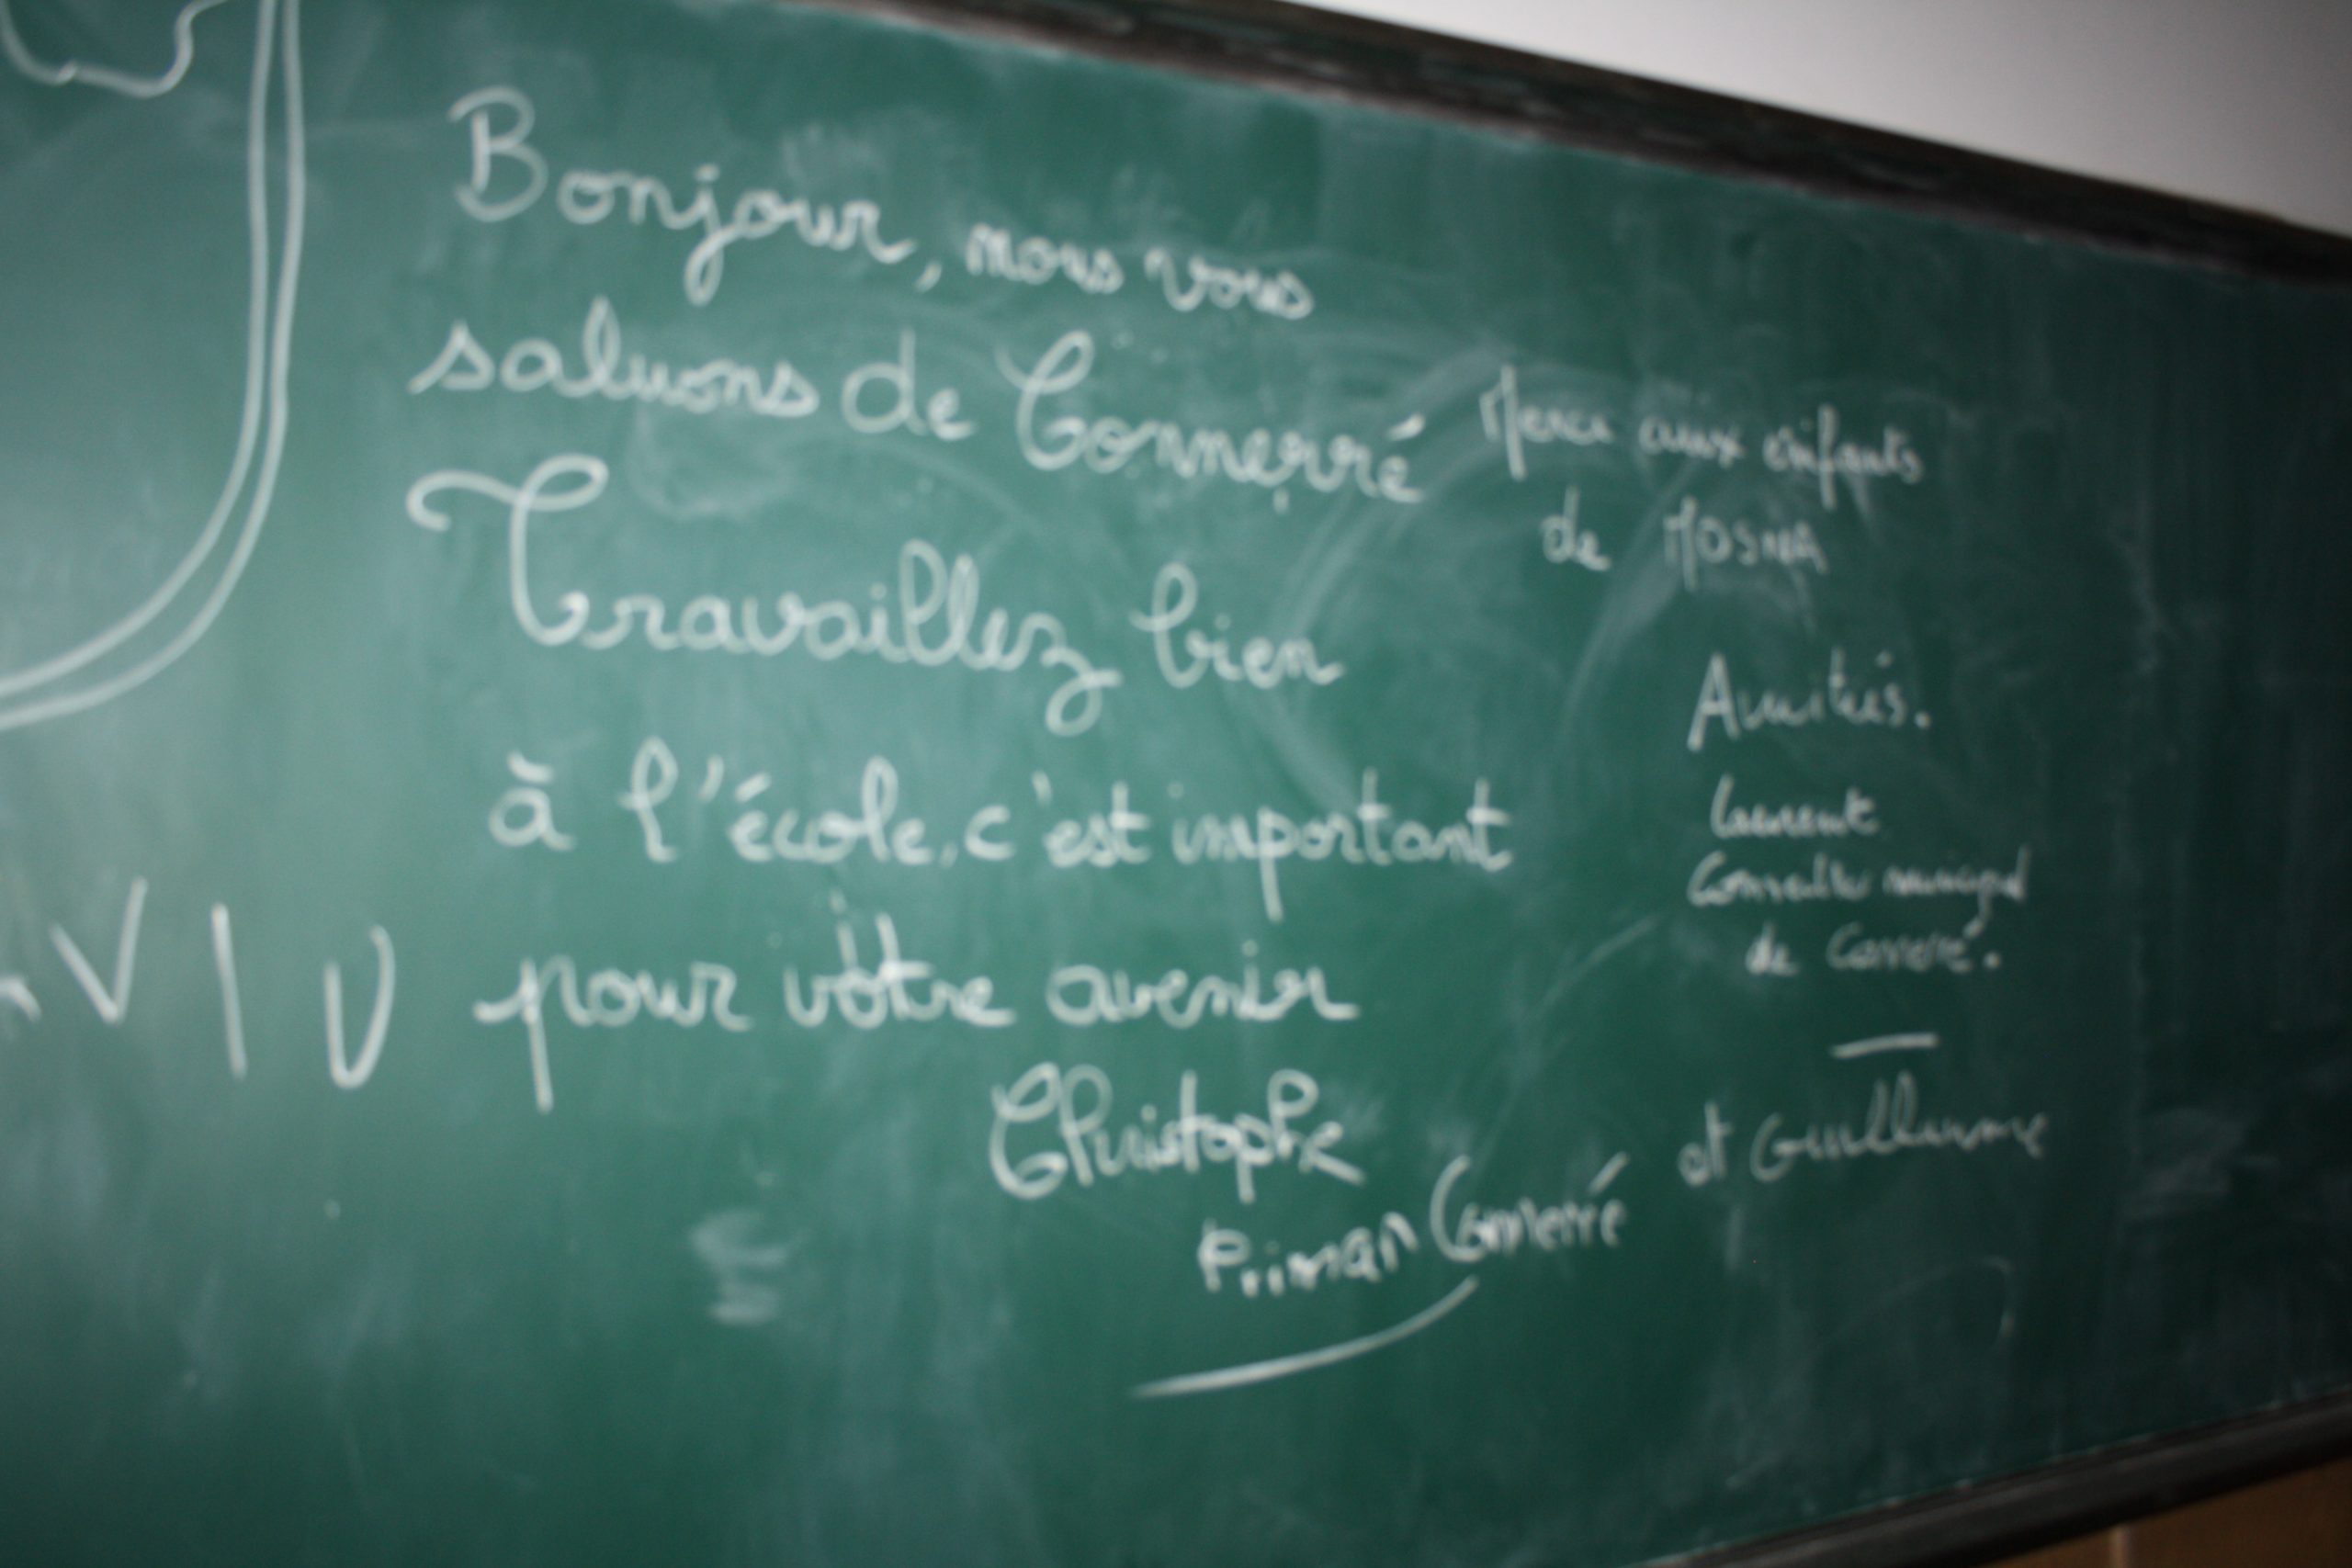 Bonjour, nous vous
saluons de Connerré
Travaillez bien
à l'école, c'est important
pour vôtre avenir
Christophe
Connerré
Merci aux enfants
de MOSNA
Amitiés.
Laurent
Conseiller municipal
de Connerré.
et Guillaume
VIU